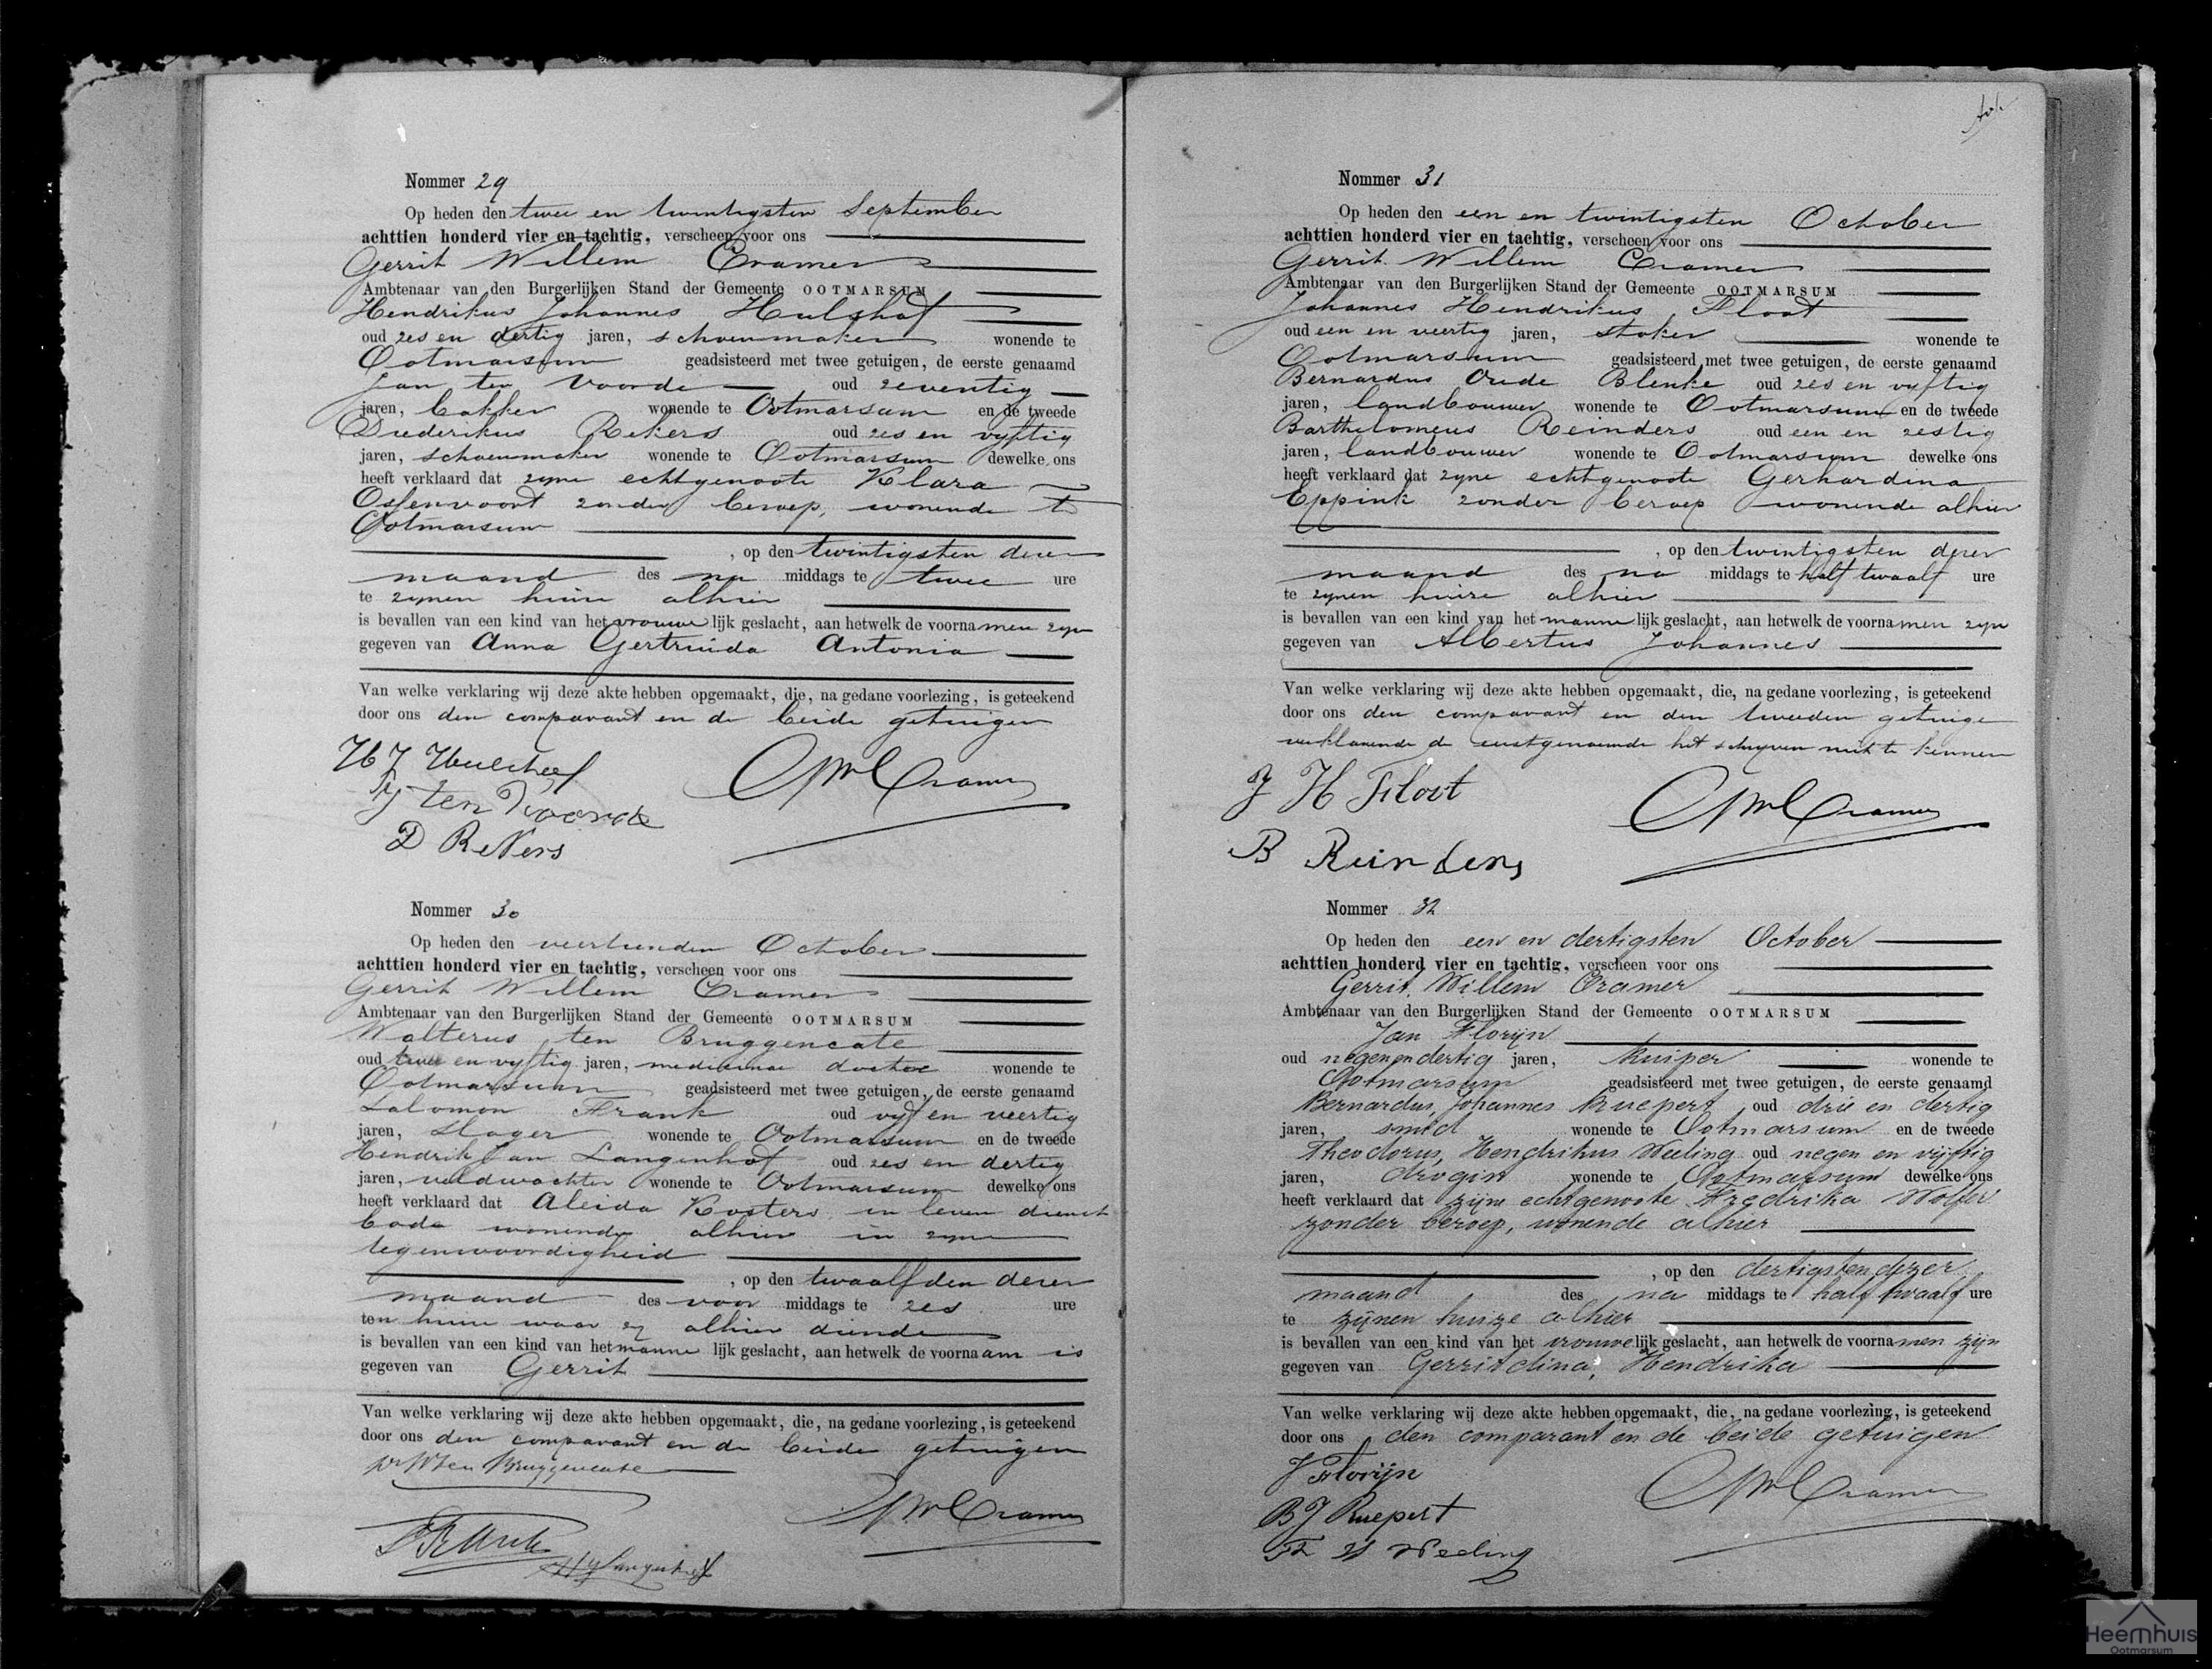 Nommer 29
Op heden den twee en twintigsten September
achttien honderd vier en tachtig, verscheen voor ons
Gerrit Willem Cramer
Ambtenaar van den Burgerlijken Stand der Gemeente OOTMARSUM
Hendrikus Johannes Hulshof
oud zes en dertig jaren, schoenmaker wonende te
Ootmarsum geadsisteerd met twee getuigen, de eerste genaamd
Jan ten Voorde oud zeventig
jaren, bakker wonende te Ootmarsum en de tweede
Diederikus Rekers oud zes en vyftig
jaren, schoenmaker wonende te Ootmarsum dewelke ons
heeft verklaard dat zyne echtgenoote Klara
Ossenvoort zonder beroep, wonende te
Ootmarsum
, op den twintigsten dezer
maand des na middags te twee ure
te zynen huize alhier
is bevallen van een kind van het vrouwe lijk geslacht, aan hetwelk de voornamen zyn
gegeven van Anna Gertruida Antonia
Van welke verklaring wij deze akte hebben opgemaakt, die, na gedane voorlezing, is geteekend
door ons den comparant en de beide getuigen
H J Hulshof
GWCramer
J ten Voorde
D Rekers
Nommer 30
Op heden den veertienden October
achttien honderd vier en tachtig, verscheen voor ons
Gerrit Willem Cramer
Ambtenaar van den Burgerlijken Stand der Gemeente OOTMARSUM
Wolterus ten Bruggencate
oud twee en vyftig jaren, medicinae doctor wonende te
Ootmarsum geadsisteerd met twee getuigen, de eerste genaamd
Salomon Frank oud vyf en veertig
jaren, slager wonende te Ootmarsum en de tweede
Hendrik Jan Langenhof oud zes en dertig
jaren, veldwachter wonende te Ootmarsum dewelke ons
heeft verklaard dat Aleida Kosters in leven dienst
bode wonende alhier in zyne
tegenwoordigheid
, op den twaalfden dezer
maand des voor middags te zes ure
ten huize waar zy alhier diende
is bevallen van een kind van het manne lijk geslacht, aan hetwelk de voornaam is
gegeven van Gerrit
Van welke verklaring wij deze akte hebben opgemaakt, die, na gedane voorlezing, is geteekend
door ons den comparant en de beide getuigen
W ten Bruggencate
GWCramer
S Frank
H J Langenhof
Nommer 31
Op heden den een en twintigsten October
achttien honderd vier en tachtig, verscheen voor ons
Gerrit Willem Cramer
Ambtenaar van den Burgerlijken Stand der Gemeente OOTMARSUM
Johannes Hendrikus Floot
oud een en veertig jaren, stoker wonende te
Ootmarsum geadsisteerd met twee getuigen, de eerste genaamd
Bernardus Oude Blenke oud zes en vyftig
jaren, landbouwer wonende te Ootmarsum en de tweede
Barthelomeus Reinders oud een en zestig
jaren, landbouwer wonende te Ootmarsum dewelke ons
heeft verklaard dat zyne echtgenoote Gerhardina
Eppink zonder beroep wonende alhier
, op den twintigsten dezer
maand des na middags te half twaalf ure
te zynen huize alhier
is bevallen van een kind van het manne lijk geslacht, aan hetwelk de voornamen zyn
gegeven van Albertus Johannes
Van welke verklaring wij deze akte hebben opgemaakt, die, na gedane voorlezing, is geteekend
door ons den comparant en den tweeden getuige
verklarende de eerstgenoemde het schryven niet te kennen
J H Floot
GWCramer
B Reinders
Nommer 32
Op heden den een en dertigsten October
achttien honderd vier en tachtig, verscheen voor ons
Gerrit Willem Cramer
Ambtenaar van den Burgerlijken Stand der Gemeente OOTMARSUM
Jan Florijn
oud negen en dertig jaren, kuiper wonende te
Ootmarsum geadsisteerd met twee getuigen, de eerste genaamd
Bernardus, Johannes Kuepert oud drie en dertig
jaren, smid wonende te Ootmarsum en de tweede
Theodorus, Hendrikus Weeling oud negen en vijftig
jaren, drogist wonende te Ootmarsum dewelke ons
heeft verklaard dat zijne echtgenoote Fredrika Wolfer
zonder beroep, wonende alhier
, op den dertigsten dezer
maand des na middags te half twaalf ure
te zijnen huize alhier
is bevallen van een kind van het vrouwe lijk geslacht, aan hetwelk de voornamen zijn
gegeven van Gerritdina, Hendrika
Van welke verklaring wij deze akte hebben opgemaakt, die, na gedane voorlezing, is geteekend
door ons den comparant en de beide getuigen
J Florijn
GWCramer
B J Kuepert
Th H Weeling
Heemhuis
Ootmarsum